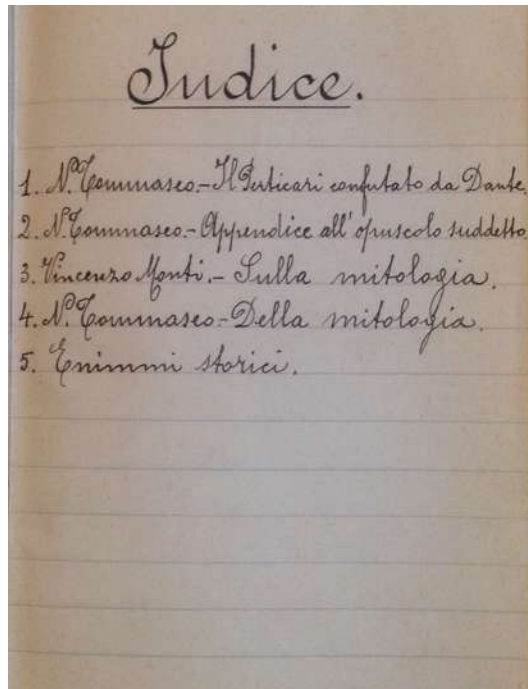 Indice.
1. N. Tommaseo.- Il Perticari confutato da Dante.
2. N. Tommaseo.- Appendice all'opuscolo suddetto
3. Vincenzo Monti.- Sulla mitologia.
4. N. Tommaseo- Della mitologia.
5. Enimmi storici.